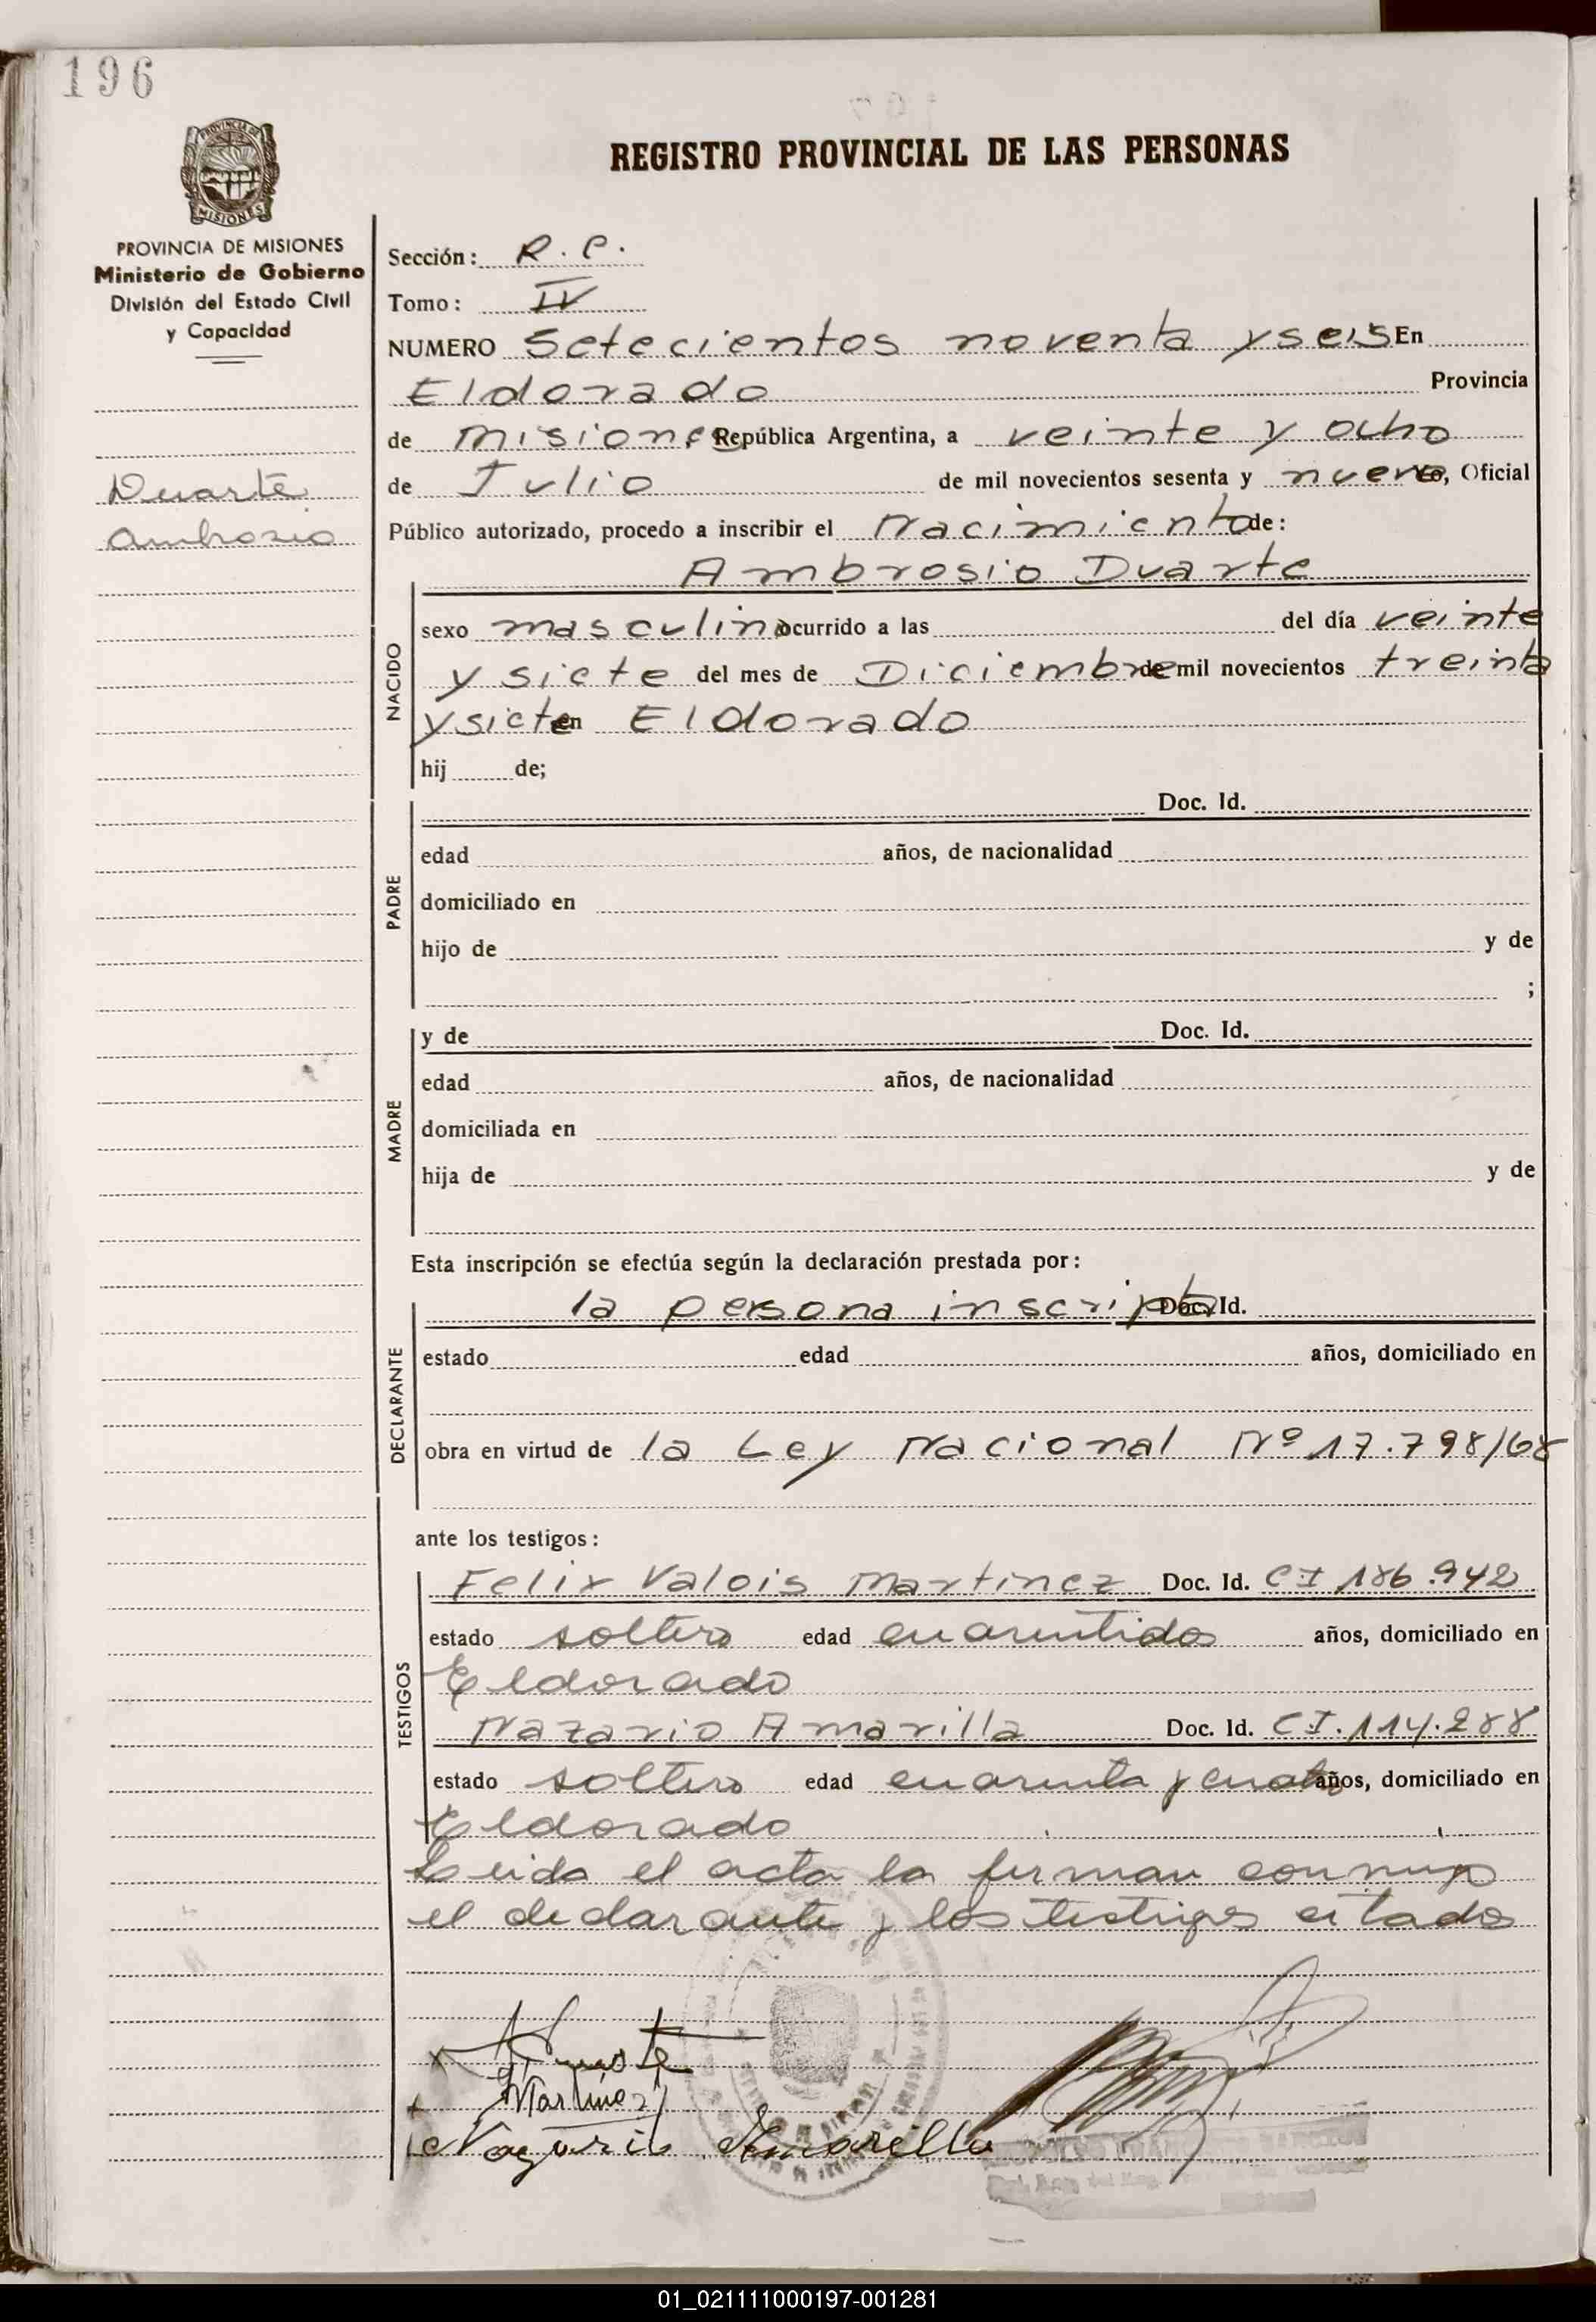 196
REGISTRO PROVINCIAL DE LAS PERSONAS
PROVINCIA DE MISIONES
Ministerio de Gobierno
División del Estado Civil
y Capacidad
Duarte
Ambrosio
Sección: R. C.
Tomo: IV
NUMERO Setecientos noventa y seis En
Eldorado Provincia
de Misiones República Argentina, a veinte y ocho
de Julio de mil novecientos sesenta y nueve, Oficial
Público autorizado, procedo a inscribir el Nacimiento de:
Ambrosio Duarte
NACIDO
sexo masculino ocurrido a las del día veinte
y siete del mes de Diciembre de mil novecientos treinta
y siete en Eldorado
hij de;
PADRE
Doc. Id.
edad años, de nacionalidad
domiciliado en
hijo de y de
;
MADRE
y de Doc. Id.
edad años, de nacionalidad
domiciliada en
hija de y de
Esta inscripción se efectúa según la declaración prestada por:
DECLARANTE
la persona inscripta Doc. Id.
estado edad años, domiciliado en
obra en virtud de la Ley Nacional Nº 17.798/68
ante los testigos:
TESTIGOS
Felix Valois Martinez Doc. Id. CI 186.942
estado soltero edad cuarentidos años, domiciliado en
Eldorado
Nazario Amarilla Doc. Id. CI. 114.288
estado soltero edad cuarenta y cuatro años, domiciliado en
Eldorado
Leida el acta la firman conmigo
el declarante y los testigos citados
Martinez
Amarilla
01_021111000197-001281